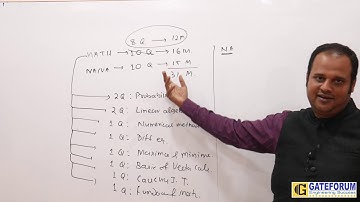 8 Q → 12M
MATH → 10 Q → 16 M
NA/VA → 10 Q → 15 M
31 M
NA
2Q: Probabili
2Q: Linear alge
1Q: Numerical metho
1Q: Differ
1Q: Maxima & minima
1Q: Basic of Vect Calc
1Q: Cauchy I.T.
1Q: Fundam
GATEFORUM
Engineering Success